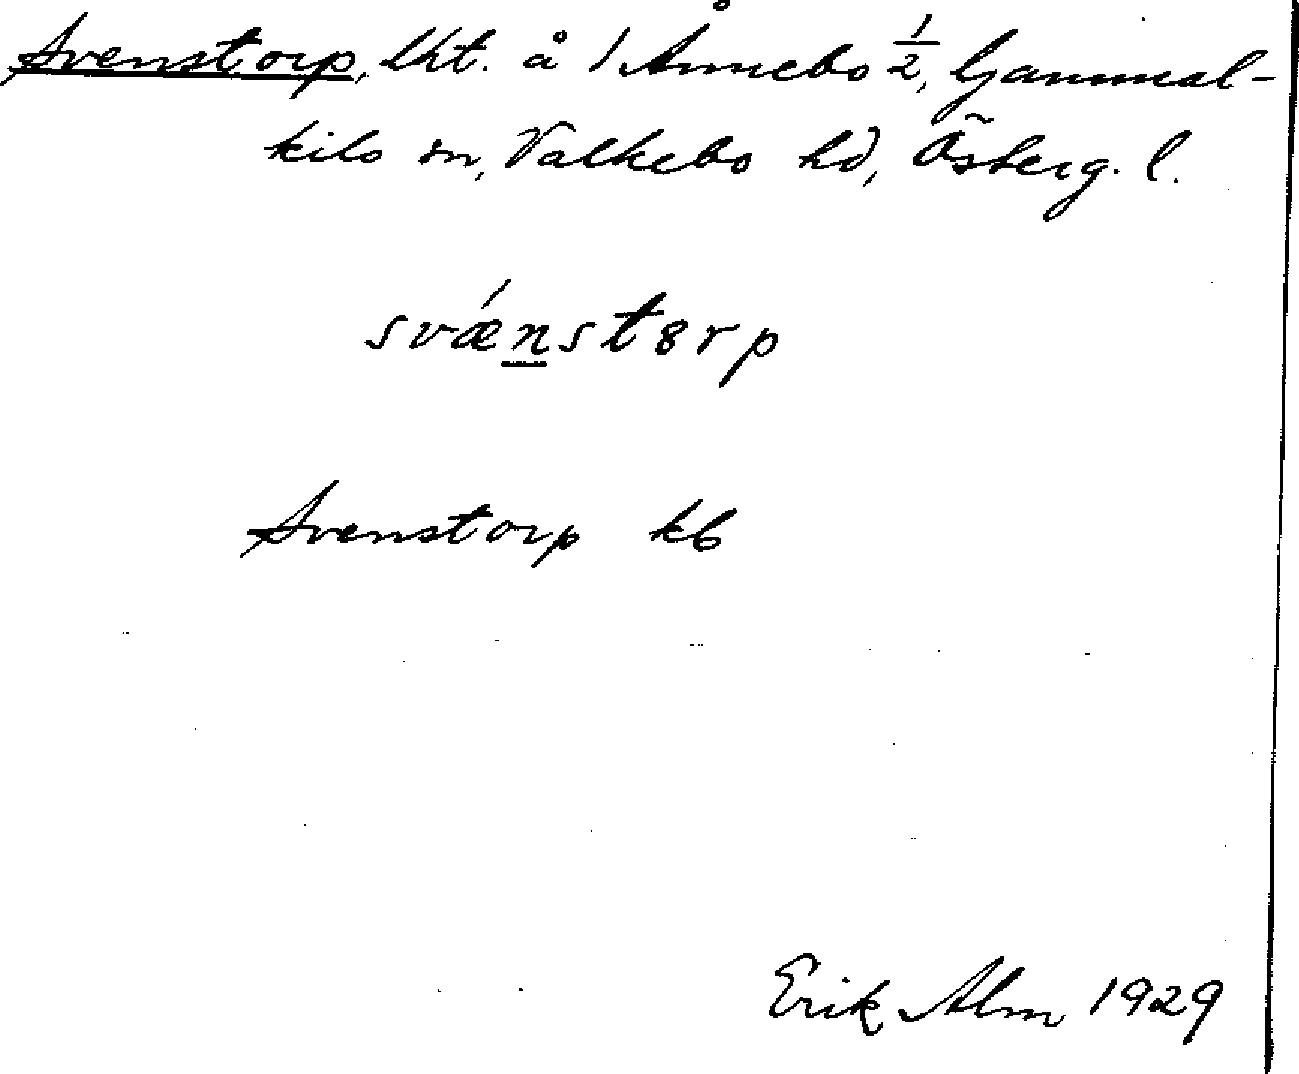 Svenstorp, lht. å 1 Ånnebo 1/2, Gammal-
kils sn, Valkebo hd, Österg. l.
svǽnstɞrp
Svenstorp kb
Erik Alm 1929